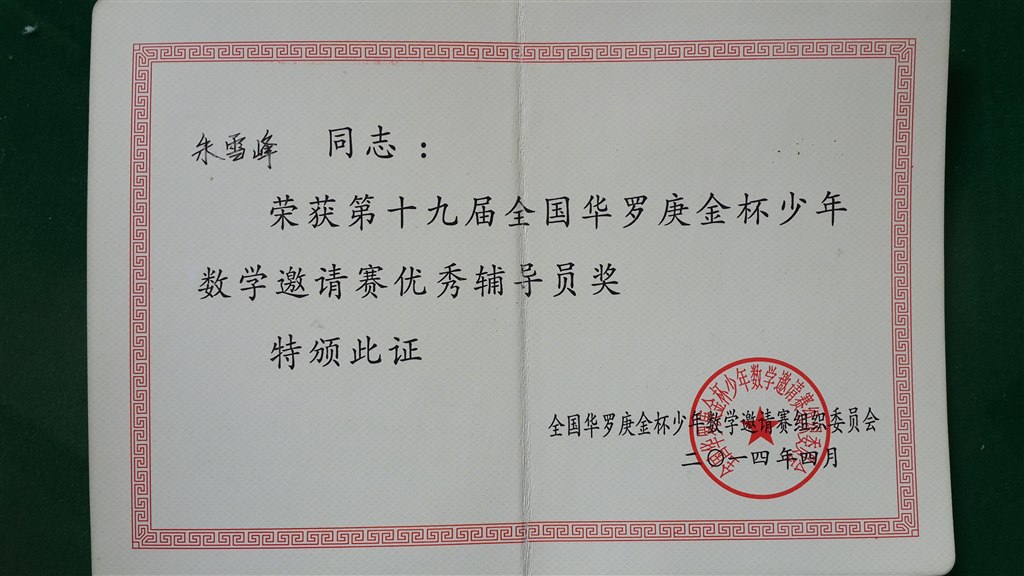 朱雪峰 同志：
荣获第十九届全国华罗庚金杯少年
数学邀请赛优秀辅导员奖
特颁此证
全国华罗庚金杯少年数学邀请赛组织委员会
二〇一四年四月
全国华罗庚金杯少年数学邀请赛组织委员会